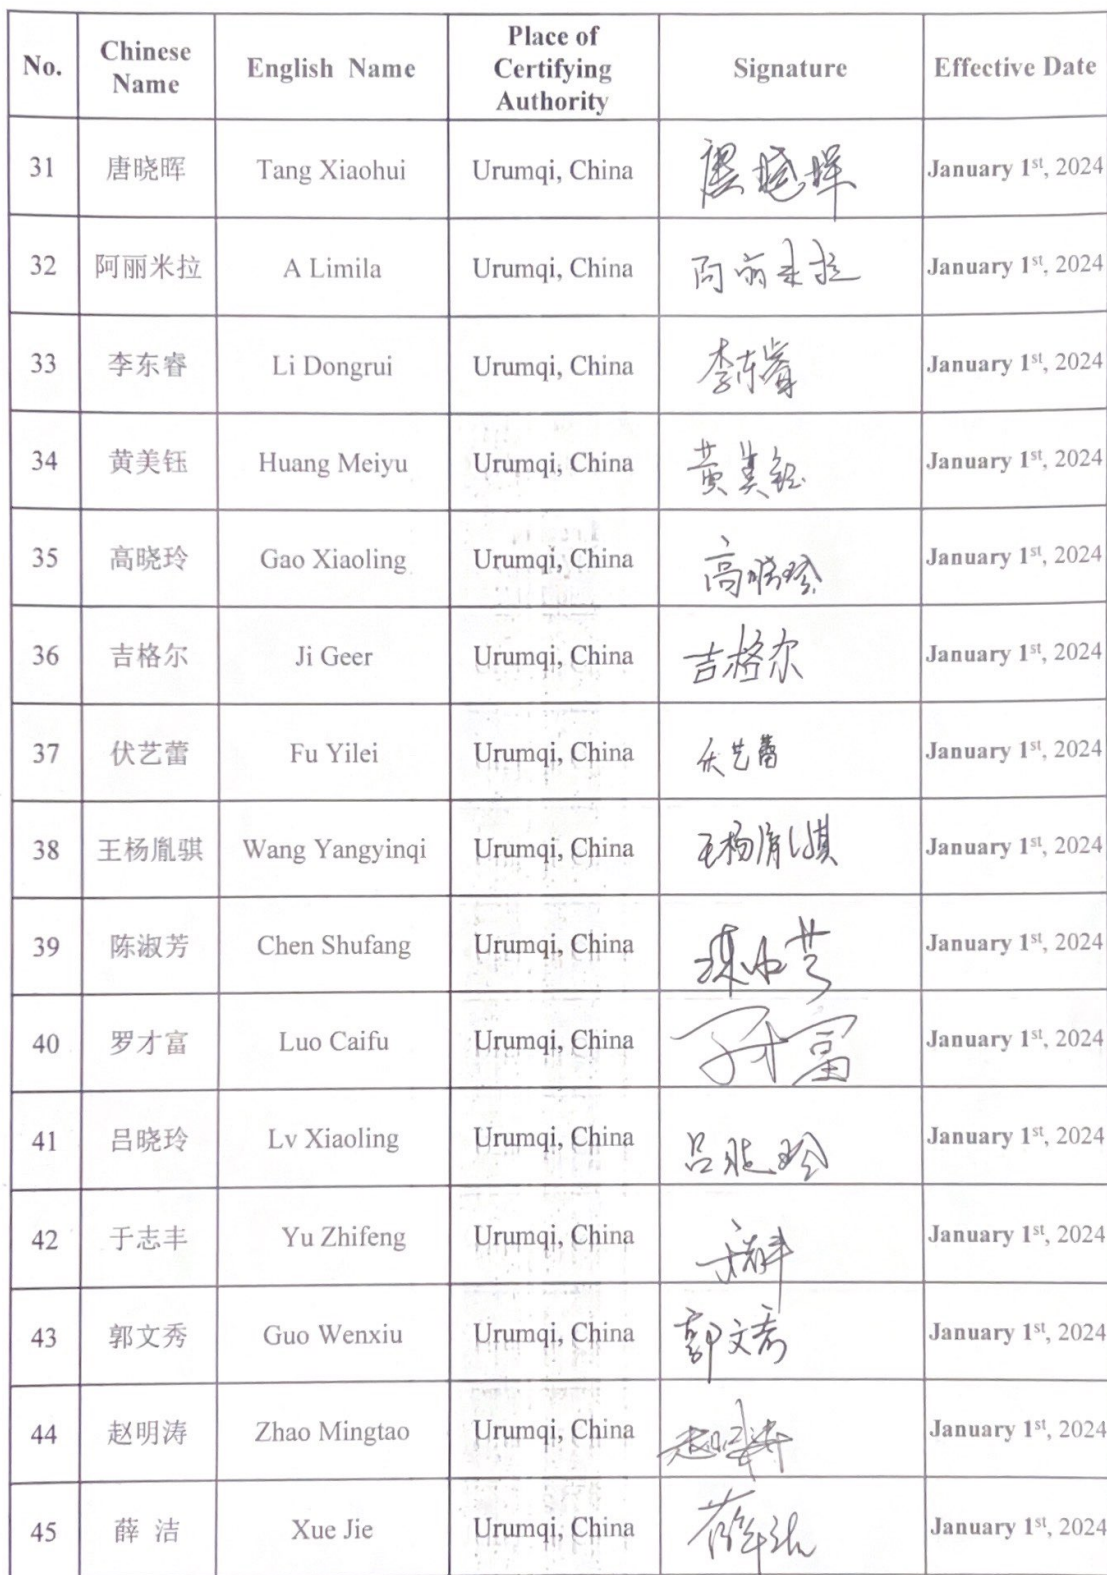 No. Chinese Name English Name Place of Certifying Authority Signature Effective Date
31 唐晓晖 Tang Xiaohui Urumqi, China 唐晓晖 January 1st, 2024
32 阿丽米拉 A Limila Urumqi, China 阿丽米拉 January 1st, 2024
33 李东睿 Li Dongrui Urumqi, China 李东睿 January 1st, 2024
34 黄美钰 Huang Meiyu Urumqi, China 黄美钰 January 1st, 2024
35 高晓玲 Gao Xiaoling Urumqi, China 高晓玲 January 1st, 2024
36 吉格尔 Ji Geer Urumqi, China 吉格尔 January 1st, 2024
37 伏艺蕾 Fu Yilei Urumqi, China 伏艺蕾 January 1st, 2024
38 王杨胤骐 Wang Yangyinqi Urumqi, China 王杨胤骐 January 1st, 2024
39 陈淑芳 Chen Shufang Urumqi, China 陈淑芳 January 1st, 2024
40 罗才富 Luo Caifu Urumqi, China 罗才富 January 1st, 2024
41 吕晓玲 Lv Xiaoling Urumqi, China 吕晓玲 January 1st, 2024
42 于志丰 Yu Zhifeng Urumqi, China January 1st, 2024
43 郭文秀 Guo Wenxiu Urumqi, China 郭文秀 January 1st, 2024
44 赵明涛 Zhao Mingtao Urumqi, China 赵明涛 January 1st, 2024
45 薛 洁 Xue Jie Urumqi, China 薛洁 January 1st, 2024